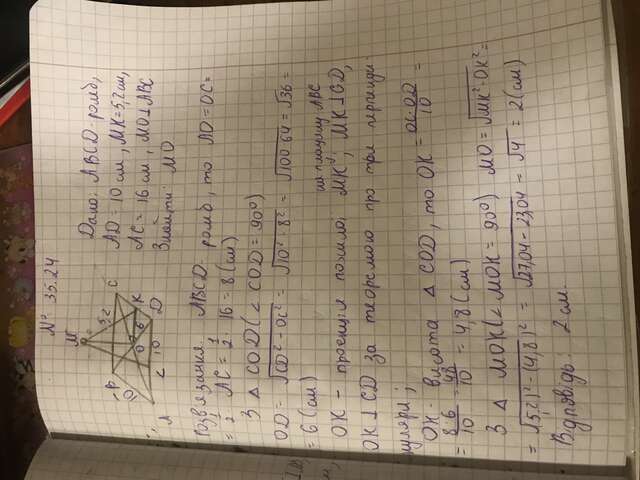 № 35.24
M
5,2
B
C
10
O
6
K
A
L
10
D
Дано: ABCD-ромб,
AD = 10 см, MK = 5,2 см,
AC = 16 см, MO⊥ABC
Знайти: MO
Розв'язання. ABCD-ромб, то AO = OC =
= 1/2 AC = 1/2 · 16 = 8 (см)
З △ COD (∠ COD = 90°)
OD = √CD² - OC² = √10² - 8² = √100-64 = √36 =
= 6 (см)
на площину ABC
OK - проекція похилої MK; MK⊥CD,
OK ⊥ CD за теоремою про три перпенди-
куляри;
OK - висота △ COD, то OK = OC·OD/10 =
= 8·6/10 = 48/10 = 4,8 (см)
З △ MOK (∠ MOK = 90°) MO = √MK² - OK² =
= √(5,2)² - (4,8)² = √27,04 - 23,04 = √4 = 2 (см)
Відповідь: 2 см.